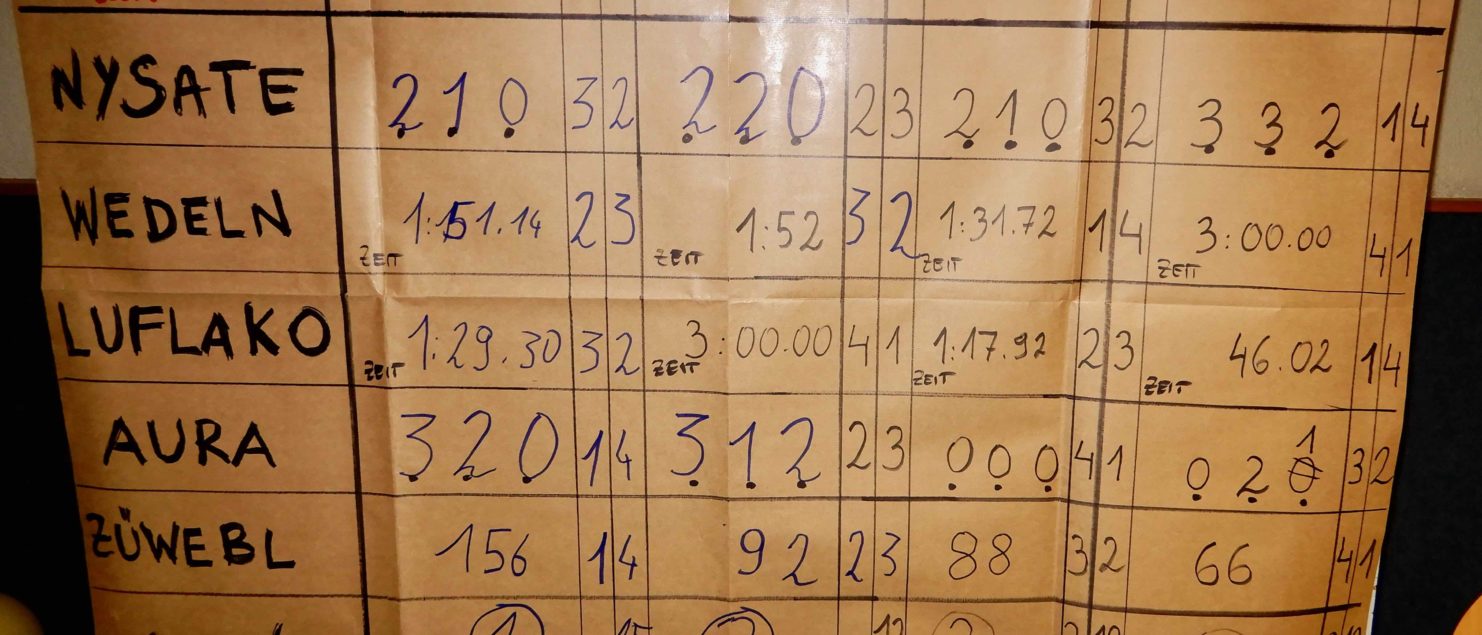 NYSATE 2 1 0 3 2 2 2 0 2 3 2 1 0 3 2 3 3 2 1 4
WEDELN ZEIT 1:51.14 2 3 ZEIT 1:52 3 2 ZEIT 1:31.72 1 4 ZEIT 3:00.00 4 1
LUFLAKO ZEIT 1:29.30 3 2 ZEIT 3:00.00 4 1 ZEIT 1:17.92 2 3 ZEIT 46.02 1 4
AURA 3 2 0 1 4 3 1 2 2 3 0 0 0 4 1 0 2 1 3 2
ZÜWEBL 156 1 4 92 2 3 88 3 2 66 4 1